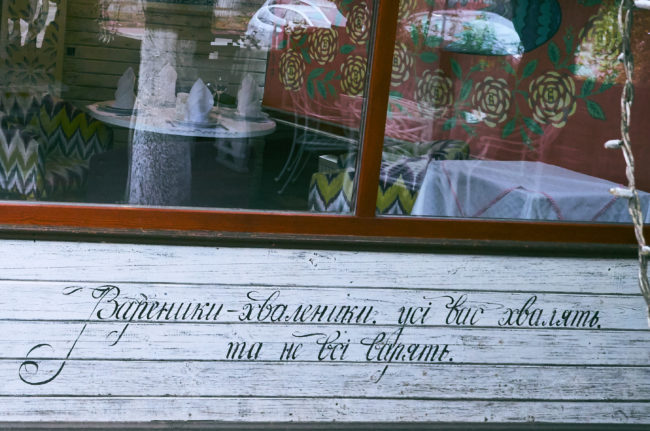 Вареники-хваленики, усі вас хвалять,
та не всі варять.